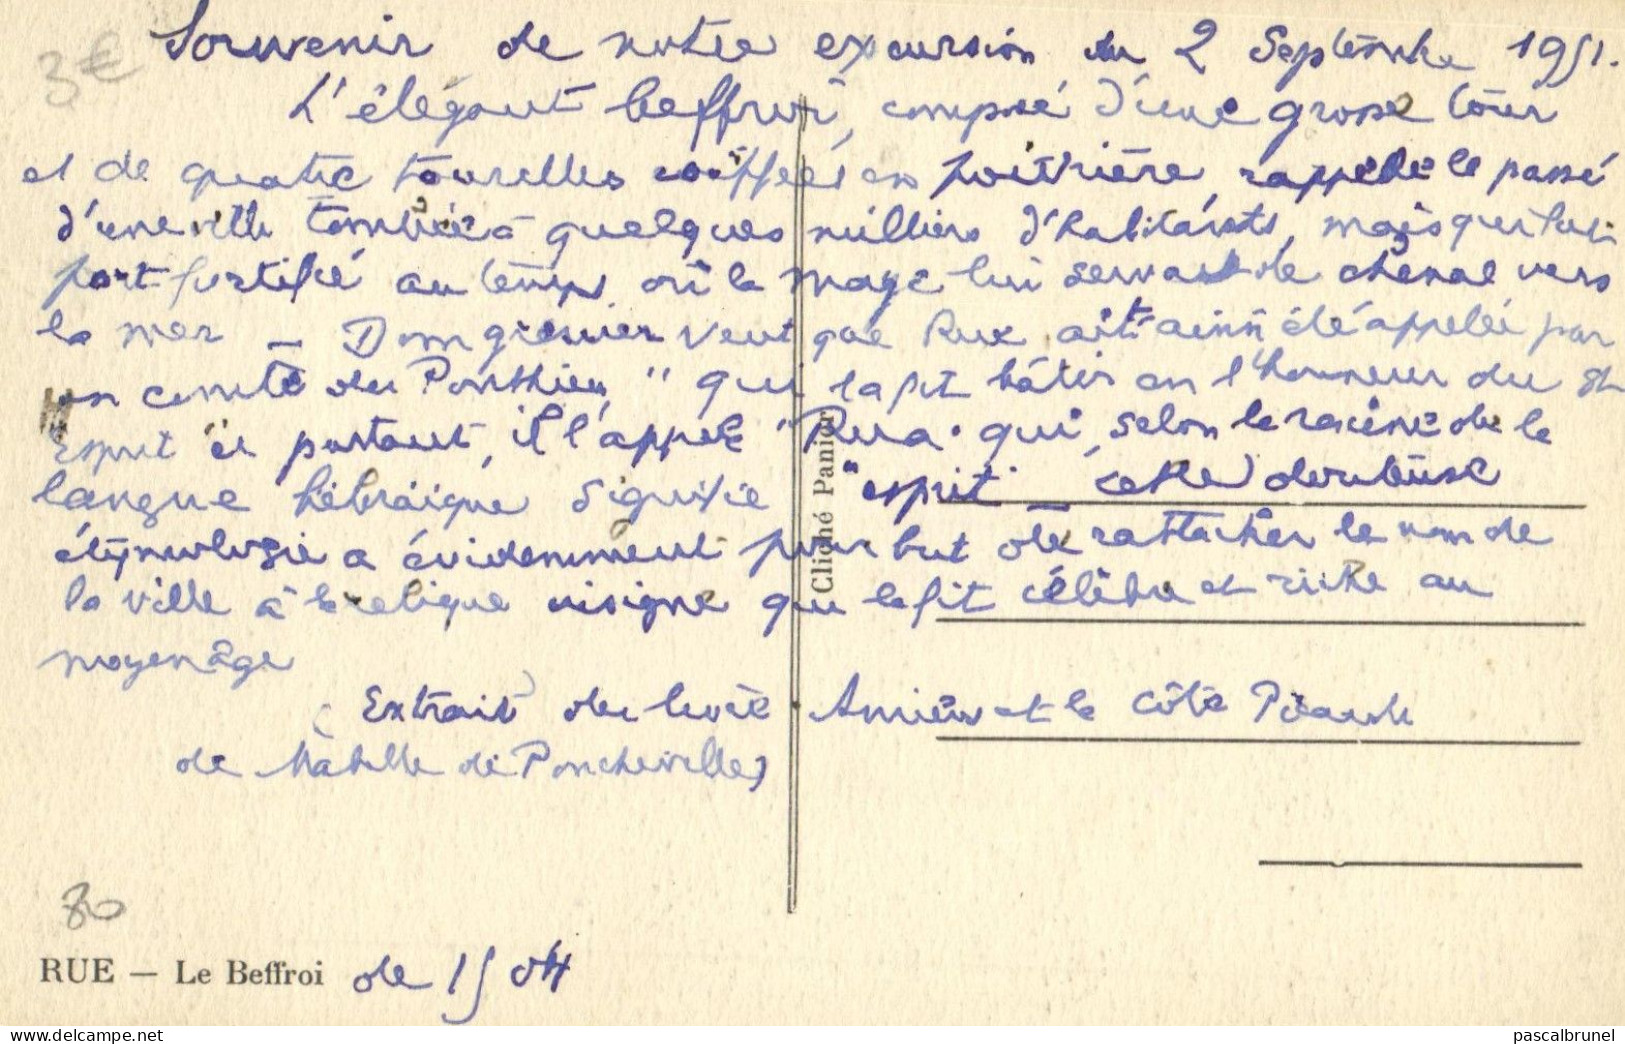 3€
Souvenir de notre excursion du 2 Septembre 1951.
L'élégant beffroi, composé d'une grosse tour
et de quatre tourelles coiffées en poivrière, rappelle le passé
d'une ville tombée à quelques milliers d'habitants, mais qui fut
port fortifié au temps où la Maye lui servait de chenal vers
la mer — Dom grenier veut que Rue ait ainsi été appelée par
un comte du Ponthieu, " qui la fit bâtir en l'honneur du St
Esprit et partant, il l'appela "Rua" qui, selon la racine de la
langue hébraïque signifie "esprit" cette douteuse
étymologie a évidemment pour but de rattacher le nom de
la ville à la relique insigne qui la fit célèbre et riche au
moyen âge
(Extrait du livre Amiens et la Côte Picarde
de Mabille de Poncheville)
Cliché Panier
80
RUE — Le Beffroi de 15
www.delcampe.net
pascalbrunel